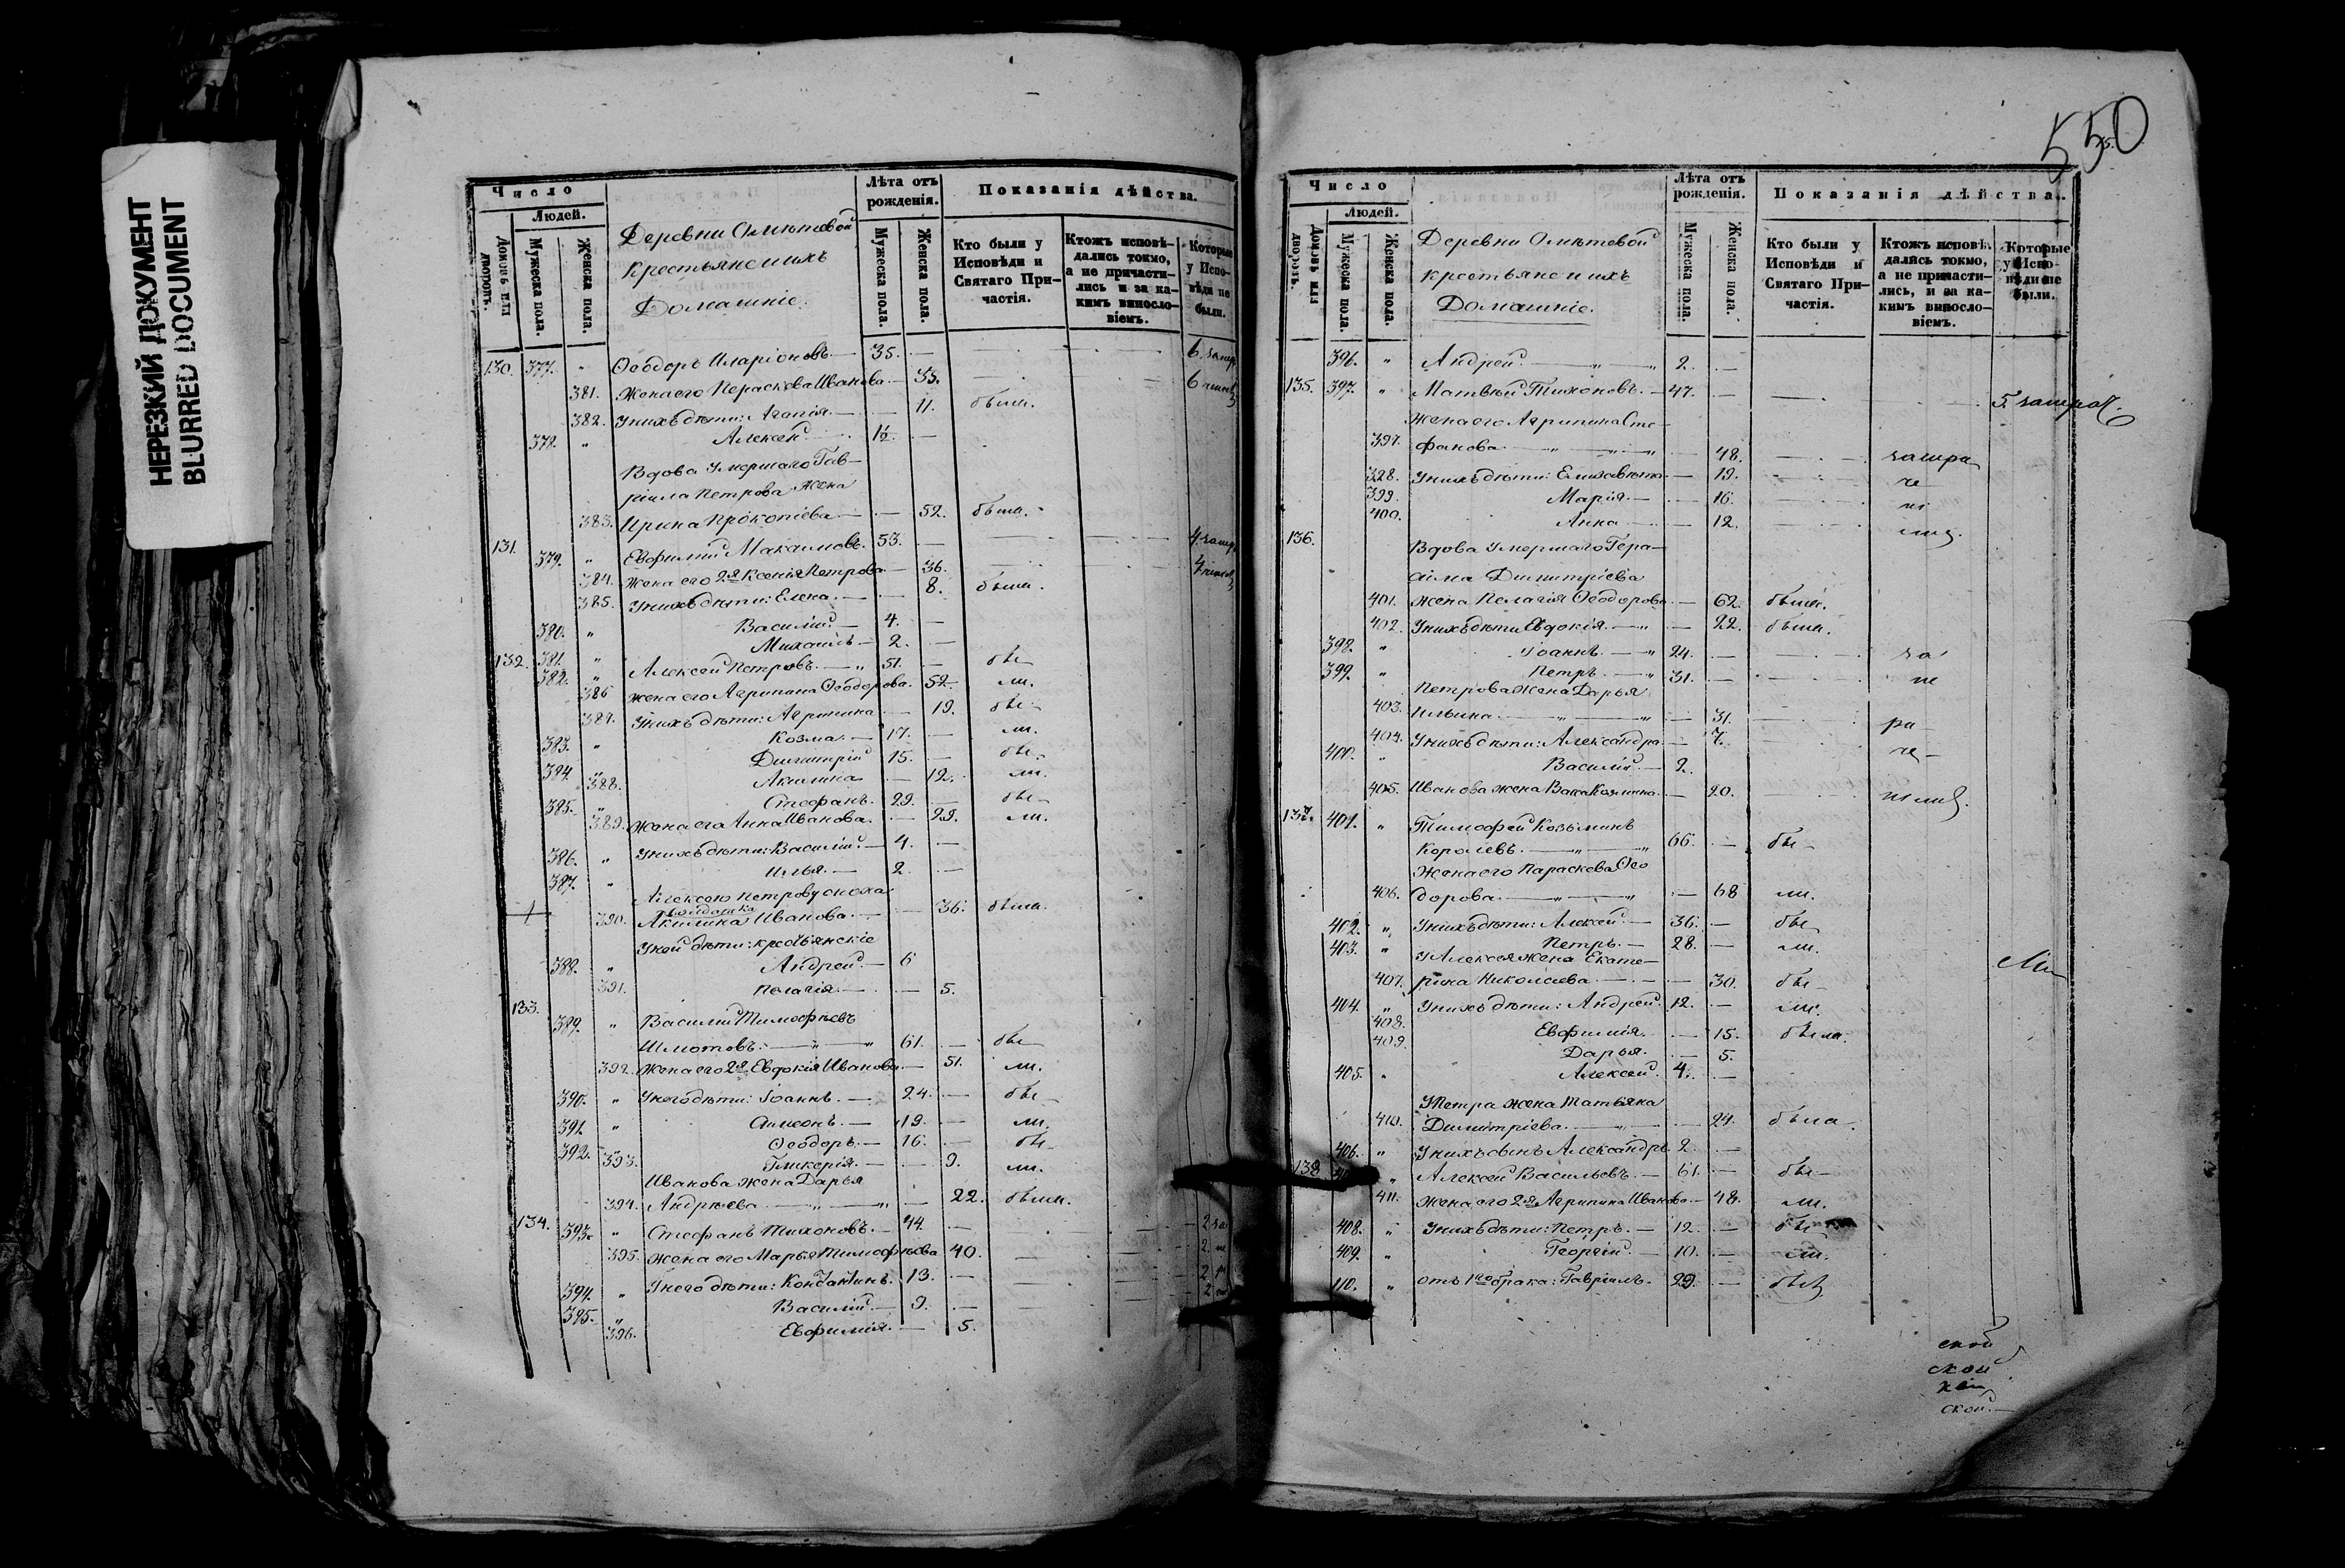 НЕРЕЗКИЙ ДОКУМЕНТ
BLURRED DOCUMENT
Число
Людей.
Домовъ или дворовъ.
Мужеска пола.
Женска пола.
Деревни Омѣтевой
крестьяне и ихъ
Домашніе.
Лѣта отъ рожденія.
Мужеска пола.
Женска пола.
Показанія дѣйства.
Кто были у Исповѣди и Святаго При-
частія.
Ктожъ исповѣ-
дались токмо,
а не причасти-
лись и за ка-
кимъ виносло-
віемъ.
Которые
у Испо-
вѣди не
были.
130. 377. " Ѳеодоръ Иларіоновъ. — 35. —
381. Жена его Параскева Иванова — 35.
382. У нихъ дѣти: Агапія. — 11. были.
378. " Алексей. 1½. —
Вдова умершаго Гав-
ріила Петрова жена
383. Ирина Прокопіева — 52. была.
131.
379. " Евфимій Максимовъ. 53. —
384. Жена его 2я Ксенія Петрова — 36.
385. У нихъ дѣти: Елена. — 8. были.
380. " Василій. — 4. —
381. " Михаилъ — 2. —
132. 382. " Алексей Петровъ. — " 51. — бы-
386 Жена его Агрипина Ѳеодорова. 52. ли.
387. У нихъ дѣти: Агрипина — 19. бы-
383. " Козма. — 17. — ли.
384. " Димитрій 15. — бы-
388. Акилина — 12. ли.
385. " Стефанъ. 29. — бы-
389. Жена его Анна Иванова. — 29. ли.
386. " У нихъ дѣти: Василій. — 4. —
387. " Илья. — 2. —
Алексею Петрову сноха
солдатка
390. Акилина Иванова. — 36. была.
У ней дѣти: крестьянскіе
388. " Андрей. — 6
391. Пелагія. — 5.
133.
389. " Василій Тимофѣевъ
Шмотовъ. — " — " 61. — бы-
392. Жена его 2я Евдокія Иванова. — 51. ли.
390. " У него дѣти: Іоаннъ. — 24. — бы-
391. " Симеонъ. — 19. — ли.
392. " Ѳеодоръ. — 16. — бы-
393. Гликерія. — 9. ли.
Иванова жена Дарья
394. Андрѣева — " — " — 22. были.
134. 393. " Стефанъ Тихоновъ. — 44. —
395. Жена его Марья Тимофѣева 40.
394. " У него дѣти: Константинъ. 13. —
395. " Василій. — 9. —
396. Евфимія. — 5.
550
Число
Людей.
Домовъ или дворовъ.
Мужеска пола.
Женска пола.
Деревни Омѣтевой
крестьяне и ихъ
Домашніе.
Лѣта отъ рожденія.
Мужеска пола.
Женска пола.
Показанія дѣйства.
Кто были у
Исповѣди и
Святаго При-
частія.
Ктожъ исповѣ-
дались токмо,
а не причасти-
лись, и за ка-
кимъ виносло-
віемъ.
Которые
у Испо-
вѣди не
были.
396. " Андрей. — " — " 2. —
135. 397. " Матвѣй Тихоновъ. — 47. —
Жена его Агрипина Сте-
397. фанова — " — " 48.
398. У нихъ дѣти: Елизавета — 19.
399. Марія. — 16.
400. Анна — 12.
136. Вдова умершаго Гера-
сима Димитріева
401. жена Пелагія Ѳеодорова. — 62. была.
402. У нихъ дѣти Евдокія. — " — 22. была.
398. " Іоаннъ. — " 24. —
399. " Петръ. — " 31. —
Петрова жена Дарья
403. Ильина. — " — " 31.
404. У нихъ дѣти: Александра — 7.
400. " Василій — 2.
405. Иванова жена — 20.
137. 401. " Тимофей Козьминъ
Королевъ. — " — " 66. — бы-
Жена его Параскева Ѳео
406. дорова. — " — " — 68 ли.
402. " У нихъ дѣти: Алексей. — 36. — бы-
403. " Петръ. — 28. — ли.
У Алексея жена Екате-
407. рина Николаева. — 30. бы-
404. " У нихъ дѣти: Андрей. 12. — ли.
408. Евфимія. — 15. были.
409. Дарья. — 5.
405. " Алексей. 4. —
У Петра жена Татьяна
410. Димитріева. — " — 24. была.
406. " У нихъ сынъ Александръ. 2. —
138. " Алексей Васильевъ. — 61. — бы-
411. Жена его 2я Агрипина Иванова — 48. ли.
408. " У нихъ дѣти: Петръ. — 12. — бы-
409. " Георгій. — 10. — ли.
110. " отъ 1го брака: Гавріилъ. 29. — былъ
ской
ской
ской